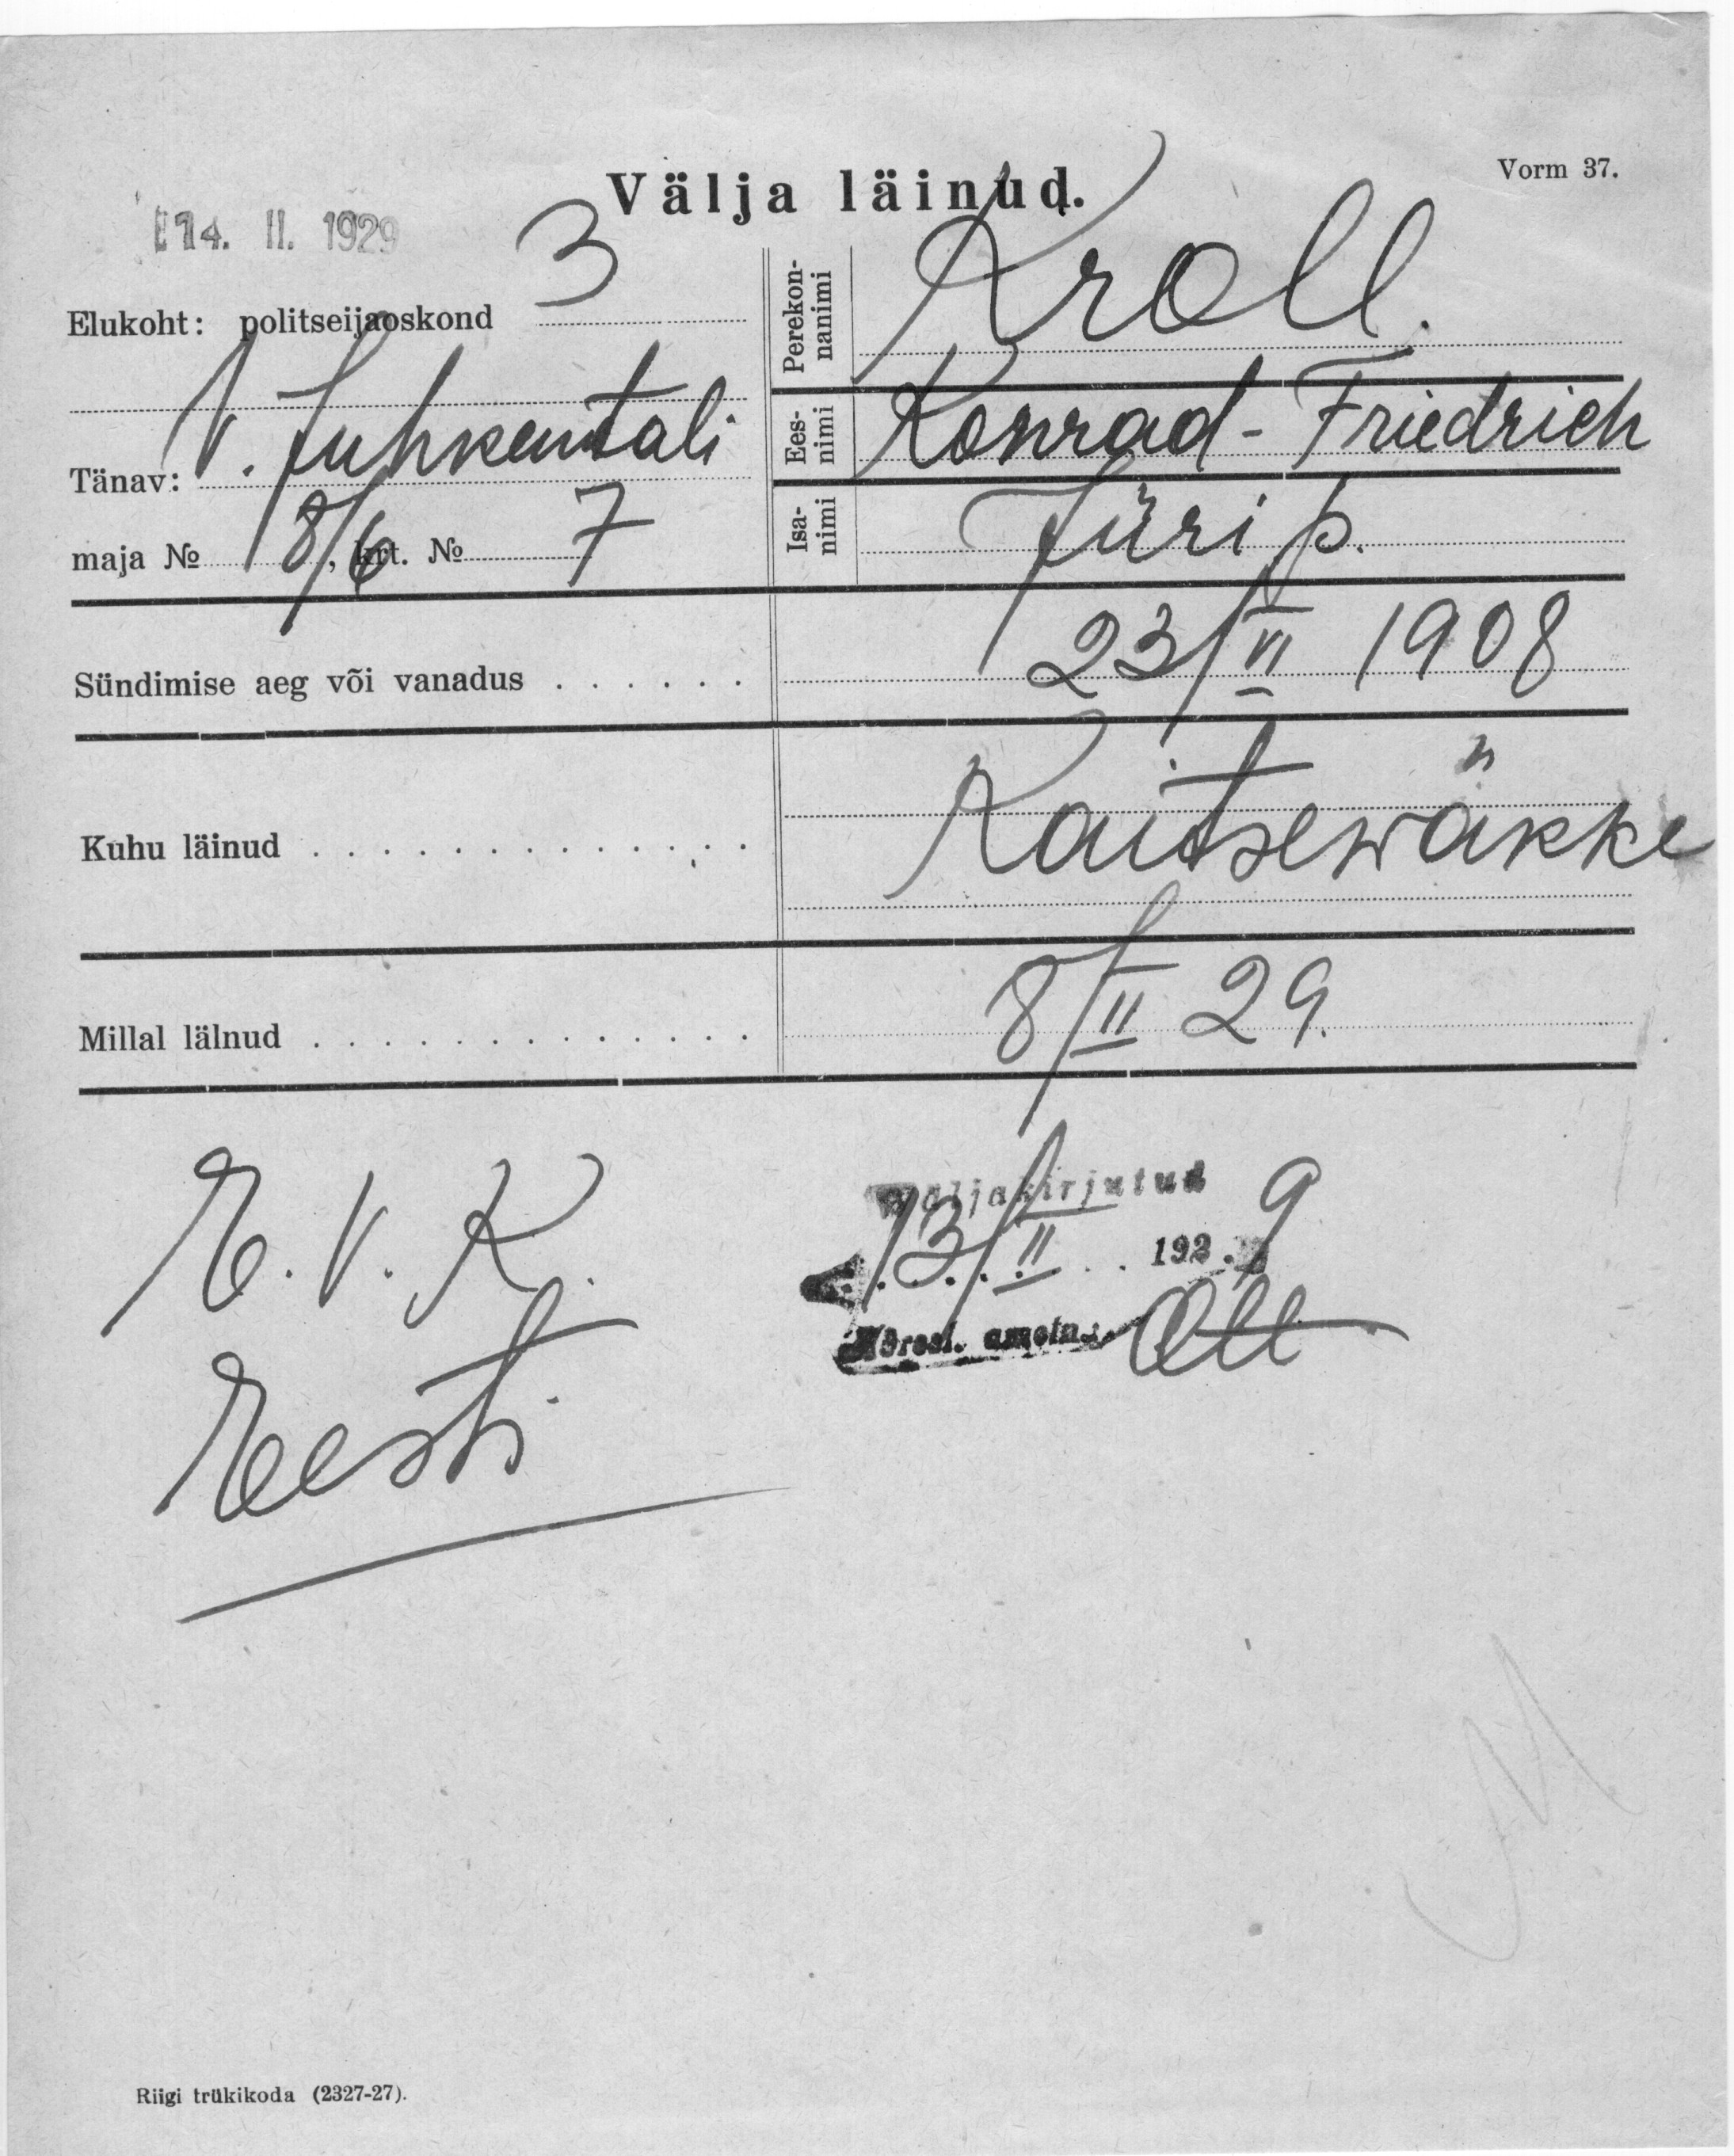 Vorm 37.
Välja läinud.
14. II. 1929
Elukoht: politseijaoskond 3
V. Juhkentali
Tänav:
maja № 8/6, krt. № 7
Perekonnanimi Kroll.
Eesnimi Konrad-Friedrich
Isanimi Jüri p.
Sündimise aeg või vanadus . . . . . . 23/VI 1908
Kuhu läinud . . . . . . . . . . . . . Kaitsewäkke
Millal lälnud . . . . . . . . . . . . . 8/II 29.
E. V. K.
Eesti
Väljakirjutud
13/II 1929
ametn. Ott
Riigi trükikoda (2327-27).